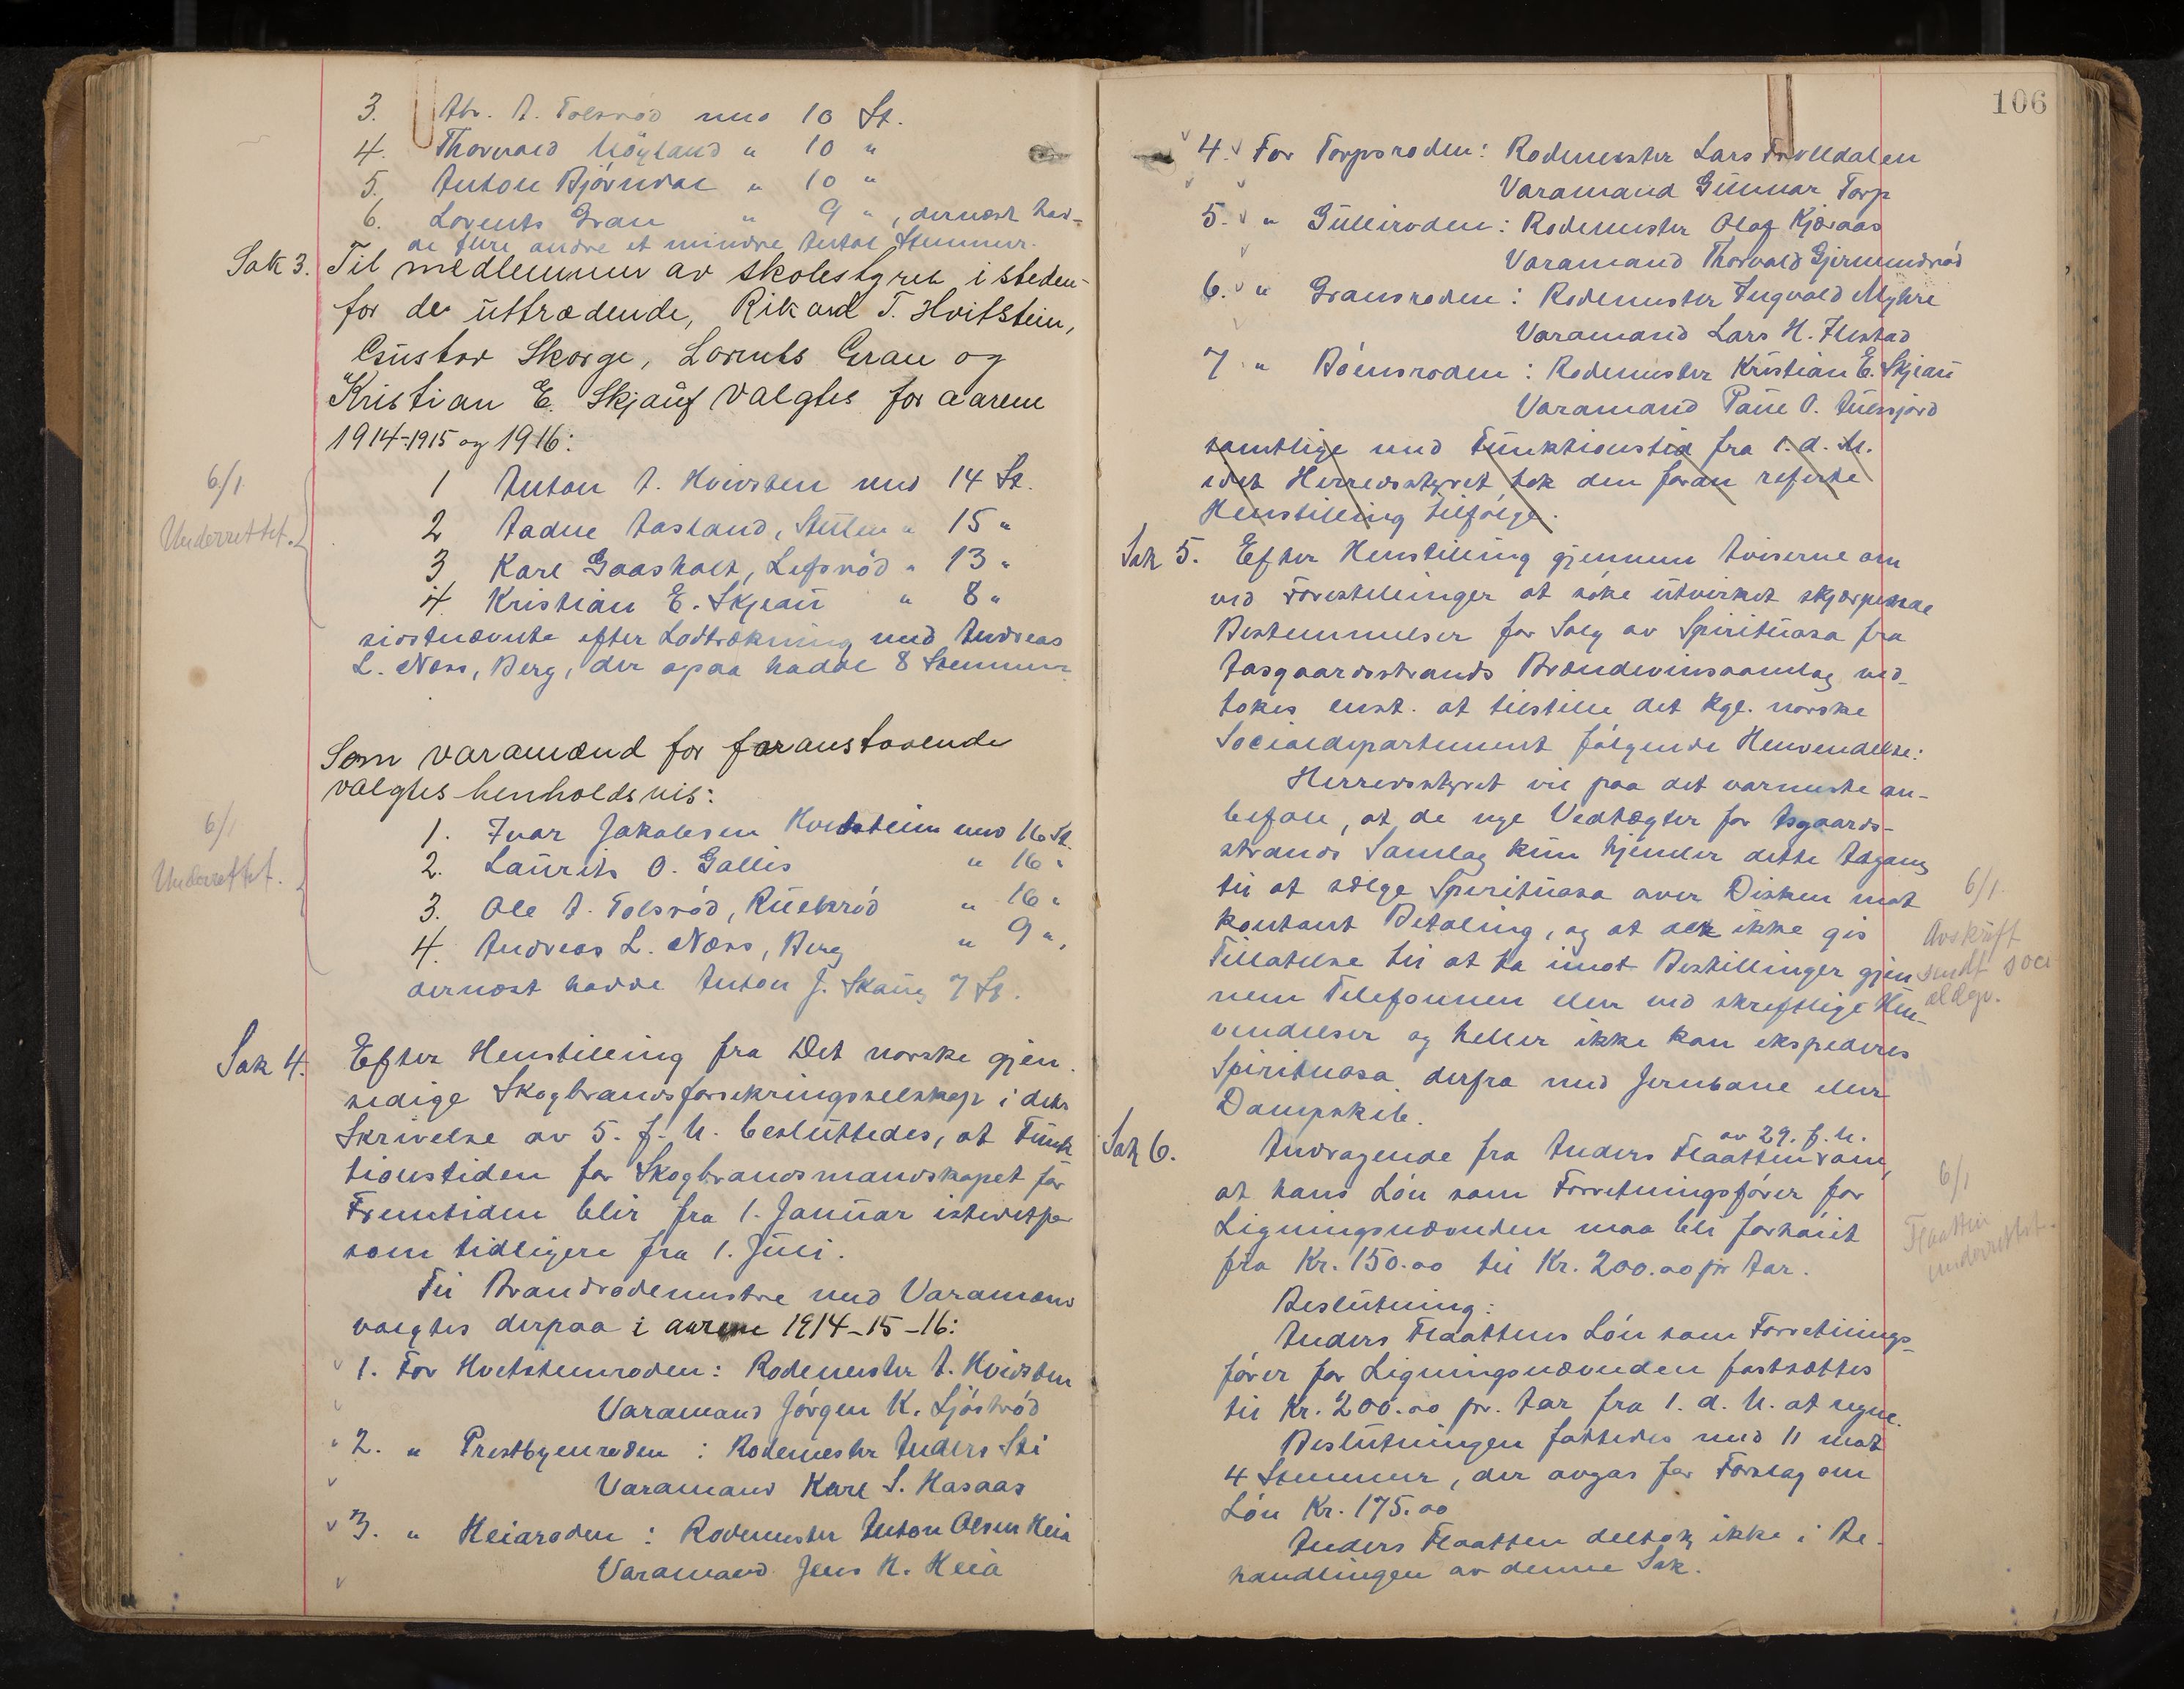 3. Abr. A. Tolsrød med 10 St.
4. Thorvald Høyland " 10 "
5. Anton Bjørndal " 10 "
6. Lorents Gran " 9 ", dernæst had-
de flere andre et mindre Antal Stemmer.
Sak 3. Til medlemmer av skolestyret isteden-
for de uttrædende, Rikard T. Hvitstein,
Gustav Skorge, Lorents Gran og
Kristian E. Skjauf valgtes for aarene
1914-1915 og 1916:
6/1
Underrettet.
1 Anton A. Hvidsten med 14 St.
2 Aadne Aasland, Stulen " 15 "
3 Karl Gaasholt, Lefsrød " 13 "
4 Kristian E. Skjeau " 8 "
sidstnævnte efter Lodtrækning med Andreas
L. Næss, Berg, der ogsaa hadde 8 Stemmer
Som varamænd for foranstaaende
valgtes henholdsvis:
6/1
Underrettet.
1. Ivar Jakobsen Hvitstein med 16 St.
2. Laurits O. Gallis " 16 "
3. Ole A. Tolsrød, Ruelsrød " 16 "
4. Andreas L. Næss, Berg " 9 ",
dernæst havde Anton J. Skaug 7 St.
Sak 4. Efter Henstilling fra Det norske gjen
sidige Skogbrandsforsikringsselskap i dets
Skrivelse av 5. f. M. besluttedes, at Funk
tionstiden for Skogbrandsmandskapet for
Fremtiden blir fra 1. Januar istedetfor
som tidligere fra 1. Juli.
Til Brandrodemestre med Varamænd
valgtes derpaa i aarene 1914-15-16:
1. For Hvitsteinroden: Rodemester A. Hvidsten
Varamand Jørgen K. Sjøstrød
2. " Prestbyenroden: Rodemester Anders Sti
Varamand Karl S. Hasaas
3. " Heiaroden: Rodemester Anton Olsen Heia
Varamand Jens H. Heia
106
4. For Torpsroden: Rodemester Lars Trolldalen
Varamand Gunnar Torp
5. " Gulliroden: Rodemester Olaf Kjæraas
Varamand Thorvald Gjermundrød
6. " Gransroden: Rodemester Ingvald Myhre
Varamand Lars H. Ilestad
7 " Bøensroden: Rodemester Kristian E. Skjeau
Varamand Paul O. Aulesjord
samtlige med Funktionstid fra 1. d. M.
idet Herredsstyret tok den foran referte
Henstilling tilfølge.
Sak 5. Efter Henstilling gjennem Aviserne om
ved Forestillinger at søke utvirket skjærpende
Bestemmelser for Salg av Spirituosa fra
Aasgaardsstrands Brændevinssamlag ved-
tokes enst. at tilstille det kgl. norske
Socialdepartement følgende Henvendelse:
Herredsstyret vil paa det varmeste an-
befale, at de nye Vedtægter for Asgaards-
strands Samlag kun hjemler dette Adgang
til at sælge Spirituosa over Disken mot
kontant Betaling, og at der ikke gis
Tilladelse til at ta imot Bestillinger gjen
nem Telefonnen eller ved skriftlige Hen-
vendelser og heller ikke kan ekspederes
Spirituosa derfra med Jernbane eller
Dampskib.
6/1.
Avskrift
sendt soci
aldep.
Sak 6. Andragende fra Anders Flaatten av 29. f. M. om,
at hans Løn som Forretningsfører for
Ligningsnævnden maa bli forhøiet
fra Kr. 150.00 til Kr. 200.00 pr Aar.
6/1
Flaatten
underrettet.
Beslutning:
Anders Flaattens Løn som Forretnings-
fører for Ligningsnævnden fastsættes
til Kr. 200.00 pr. Aar fra 1. d. M. at regne.
Beslutningen fattedes med 11 mot
4 Stemmer, der avgas for Forslag om
Løn Kr. 175.00
Anders Flaatten deltok ikke i Be-
handlingen av denne Sak.